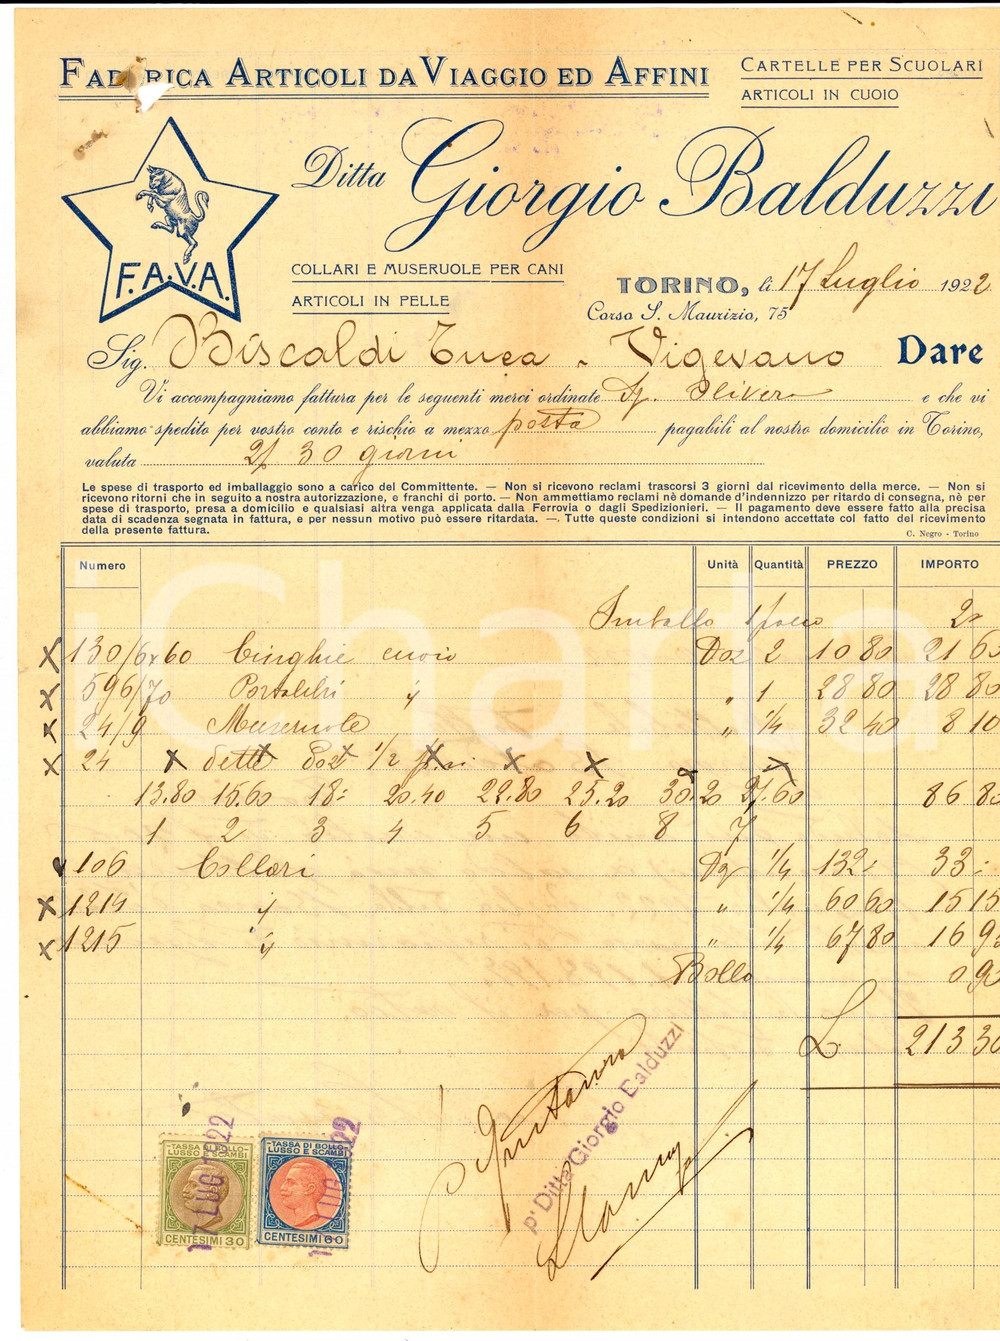 FABBRICA ARTICOLI DA VIAGGIO ED AFFINI
CARTELLE PER SCUOLARI
ARTICOLI IN CUOIO
Ditta Giorgio Balduzzi
F.A.V.A.
COLLARI E MUSERUOLE PER CANI
ARTICOLI IN PELLE
TORINO, li 17 Luglio 1922
Corso S. Maurizio, 75
Sig. Biscaldi Enea - Vigevano Dare
Vi accompagniamo fattura per le seguenti merci ordinate Sg. Olivero e che vi
abbiamo spedito per vostro conto e rischio a mezzo posta pagabili al nostro domicilio in Torino,
valuta 2/ 30 giorni
Le spese di trasporto ed imballaggio sono a carico del Committente. — Non si ricevono reclami trascorsi 3 giorni dal ricevimento della merce. — Non si
ricevono ritorni che in seguito a nostra autorizzazione, e franchi di porto. — Non ammettiamo reclami nè domande d'indennizzo per ritardo di consegna, nè per
spese di trasporto, presa a domicilio e qualsiasi altra venga applicata dalla Ferrovia o dagli Spedizionieri. — Il pagamento deve essere fatto alla precisa
data di scadenza segnata in fattura, e per nessun motivo può essere ritardata. —. Tutte queste condizioni si intendono accettate col fatto del ricevimento
della presente fattura.
C. Negro - Torino
Numero Unità Quantità PREZZO IMPORTO
Imballo 1 pacco 2
x 130/6x60 Cinghie cuoio Doz 2 10 80 21 60
x 596/70 Portalibri " " 1 28 80 28 80
x 24/9 Museruole " 1/4 32 40 8 10
x 24 x dette Doz 1/2 x x x
13.80 15.60 18: 20.40 22.80 25.20 30.20 27.60 86 80
1 2 3 4 5 6 8 7
106 Collari Dz 1/4 132: 33:
x 1214 " " 1/4 60 60 15 15
x 1215 " " 1/4 67 80 16 95
Bollo 0 90
L. 213 30
p. Quietanza
p' Ditta Giorgio Balduzzi
TASSA DI BOLLO
LUSSO E SCAMBI
17 LUG 1922
CENTESIMI 30
TASSA DI BOLLO
LUSSO E SCAMBI
CENTESIMI 60
iCharta